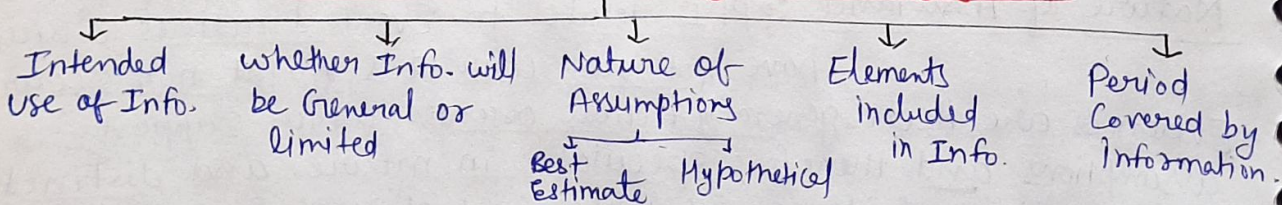 Intended
use of Info.
whether Info. will
be General or
limited
Nature of
Assumptions
Best
Estimate
Hypothetical
Elements
included
in Info.
Period
Covered by
Information.